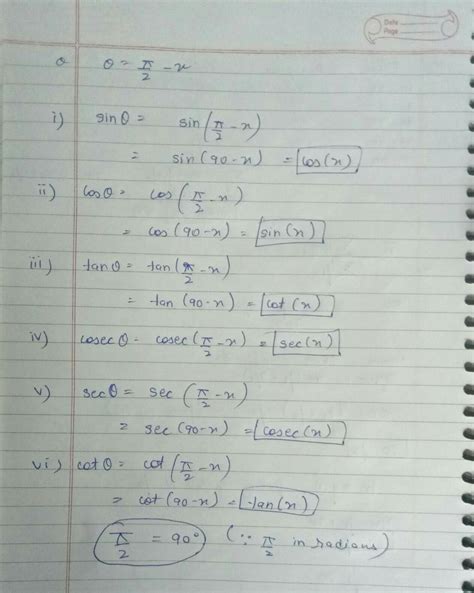 Date
Page
θ θ = π/2 - x
i) sinθ = sin(π/2 - x)
= sin(90 - x) = cos(x)
ii) cosθ = cos(π/2 - x)
= cos(90 - x) = sin(x)
iii) tanθ = tan(π/2 - x)
= tan(90 - x) = cot(x)
iv) cosecθ = cosec(π/2 - x) = sec(x)
v) secθ = sec(π/2 - x)
= sec(90 - x) = cosec(x)
vi) cotθ = cot(π/2 - x)
= cot(90 - x) = tan(x)
π/2 = 90° (∵ π/2 in radians)